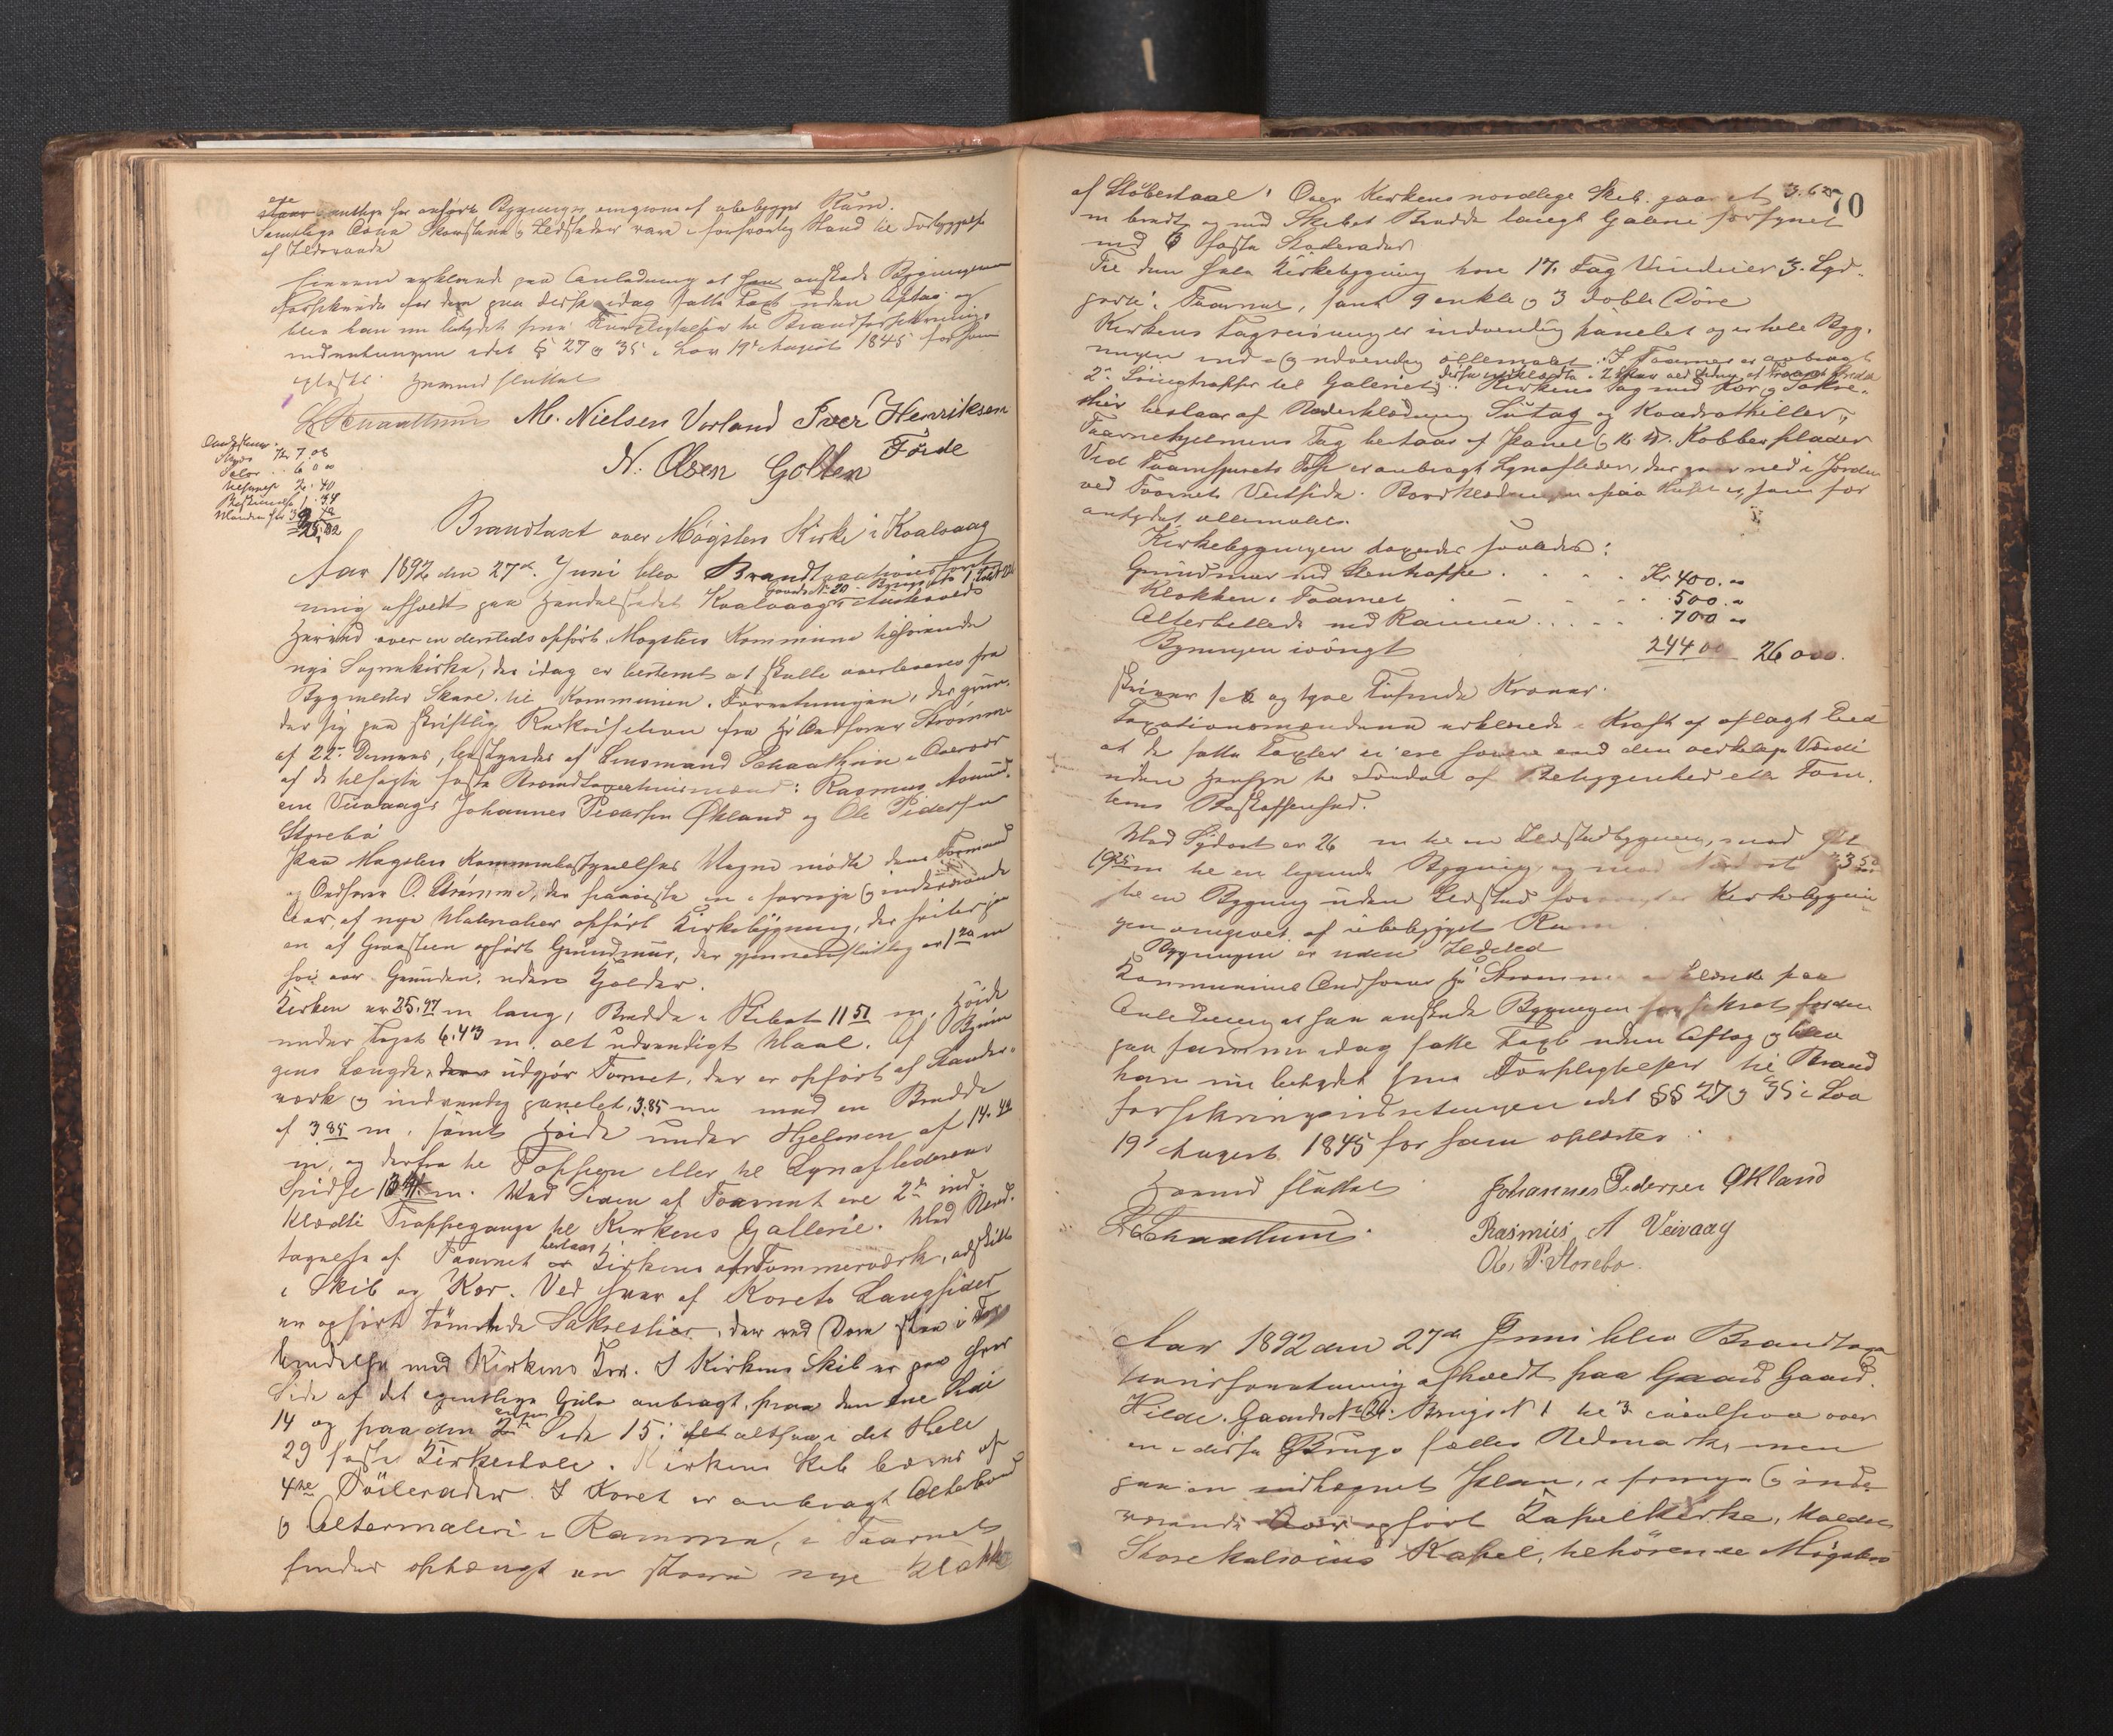 samtlige her anførte Bygninger omgivne af ubebygget Rum.
Samtlige Ovne Skorstene og Ildsteder vare i forsvarlig Stand til Forebyggelse
af Ildsvaade
paa Anledning at han ønskede Bygningerne
forsikrede for den paa disse idag satte Taxt uden Aftag og
blev han nu betydet sine Forpligtelser til Brandforsikrings-
indretningen idet § 27 og 35 i Lov 19de August 1845 for ham
oplæstes. Hermed sluttet
M. Nielsen Vorland Iver Henriksen
Førde
N. Olsen Golten
Skyds Kr 7.08
6.00
2.40
1.34
Brandtaxt over Møgsters Kirke i Kvalvaag
Aar 1892 den 27de Juni blev Brandtaxationsforret-
Gaards No 20 Brugs No 1
ning afholdt paa Handelsstedet Kvalvaag i Austevolds
Herred over en dersteds opført Møgsters Kommune tilhørende
nye Sognekirke, der idag er bestemt at skulle overleveres fra
Bygmester Skare til Kommunen. Forretningen, der grun-
der sig paa skriftlig Rekvisition fra Hr Ordfører Strømme
af 22de Dennes, bestyredes af Lensmand i Overvær
af de tilsagte faste Brandtaxationsmænd: Rasmus Amund-
sen Veivaag, Johannes Pedersen Økland og Ole Pedersen
Storebø
Paa Møgsters Kommunebestyrelses Vegne mødte dens Formand
og Ordfører O. Strømme, der fremviste en i forrige og indeværende
Aar af nye Materialier opført Kirkebygning, der hviler paa
en af Graasteen opført Grundmuur, der gjennemsnitlig er 1 20 m
høi over Grunden, uden Kjelder.
Kirken er 25,97 m lang, Bredde i Skibet 11 51 m, Høide
under Taget 6.43 m alt udvendigt Maal. Af Bygnin-
gens Længde udgjør Taarnet, der er opført af Stander-
værk og indvendig panelet, 3.85 m med en Bredde
af 3 85 m, samt Høide under Hjelmen af 14.42
m, og derfra til Toppen eller til Lynaflederens
Spidse m. Ved Siden af Taarnet ere 2de ind-
klædte Trappegange til Kirkens Gallerie. Med Und-
tagelse af Taarnet bestaar Kirken af Tømmerværk, adskilt
i Skib og Kor. Ved hver af Korets Langsider
er opført tømrede Sakrestier, der ved Døre staa i For-
bindelse med Kirkens Kor. I Kirkens Skib er paa hver
Side af det egentlige Gulv anbragt, paa den ene Side
14 og paa den anden Side 15, altsaa i det Hele
29 faste Kirkestole. Kirkens Skib bæres af
4re Søilerader. I Koret er anbragt Alterbord
og Altermaleri i Ramme, i Taarnet
findes ophængt en større nye Klokke
70
af Støbestaal. Over Kirkens nordlige Skib gaar et 3.6
m bredt og med Skibets Bredde langt Galleri forsynet
med 6 faste Stolerader
Til den hele Kirkebygning høre 17 Fag Vinduer 3 Lyd-
porte i Taarnet, samt 9 enkle og 3 doble Døre
Kirkens Tagreisning er indvendig panelet og er hele Byg-
ningen ind- og udvendig oliemalet. I Taarnet er anbragt
2de Svingtrapper til Galleriet. Kirkens Tag med Kor og Sakre-
stier bestaar af Underklædning Sutag og Kvadrathiller,
Taarnehjelmens Tag bestaar af Panel og Kobberplader
Ved Taarnspirets Top er anbragt Lynafleder, der gaar ned i Jorden
ved Taarnets Vestside. Bordklædningen paa Huset er som før
antydet oliemalet.
Kirkebygningen taxeredes saaledes:
Grundmur med Stentrappe . . . Kr 400.00
Klokken i Taarnet . . . 500.00
Alterbillede med Ramme . . . 700 00
Bygningen iøvrigt 24400 26000.
skriver sex og tyve Tusinde Kroner.
Taxationsmændene erklærede i Kraft af aflagt Eed
at de satte Taxter ei ere høiere end den virkelige Værdi
uden Hensyn til Fordel af Beliggenhed eller Tom-
tens Beskaffenhed.
Mod Sydost er 26 m til en Ildstedbygning, mod Øst
19 25 m til en lignende Bygning og mod Nordost 33 50
til en Bygning uden Ildsted forøvrigt er Kirkebygnin-
gen omgivet af ubebygget Rum
Bygningen er uden Ildsted
Kommunens Ordfører Hr Strømme erklærede paa
Anledning at han ønskede Bygningen forsikret for den
paa samme idag satte Taxt uden Aftag og blev
han nu betydet sine Forpligtelser til Brand
forsikringsindretningen idet §§ 27 og 35 i Lov
19de August 1845 for ham oplæstes.
Hermed sluttet
Johannes Pedersen Økland
Rasmus A Veivaag
Ole P. Storebø
Aar 1892 den 27de Juni blev Brandtaxa
tionsforretning afholdt paa Gaard
Hilde. Gaards No 26. Brugs N 1 til 3 inclusive over
en i disse Brugs fælles Udmark, men
paa en indhegnet Plan, i forrige og inde-
værende Aar opført Kapelkirke, kaldet
Storekalsøens Kapel, tilhørende Møgsters